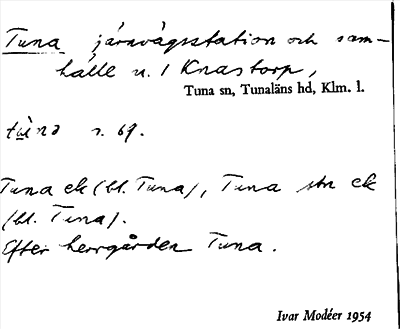 Tuna järnvägsstation och sam-
hälle u. 1 Knastorp,
Tuna sn, Tunaläns hd, Klm. l.
s. 69.
Tuna ek (bl. Tuna), Tuna stn ek
(bl. Tuna).
Efter herrgården Tuna.
Ivar Modéer 1954